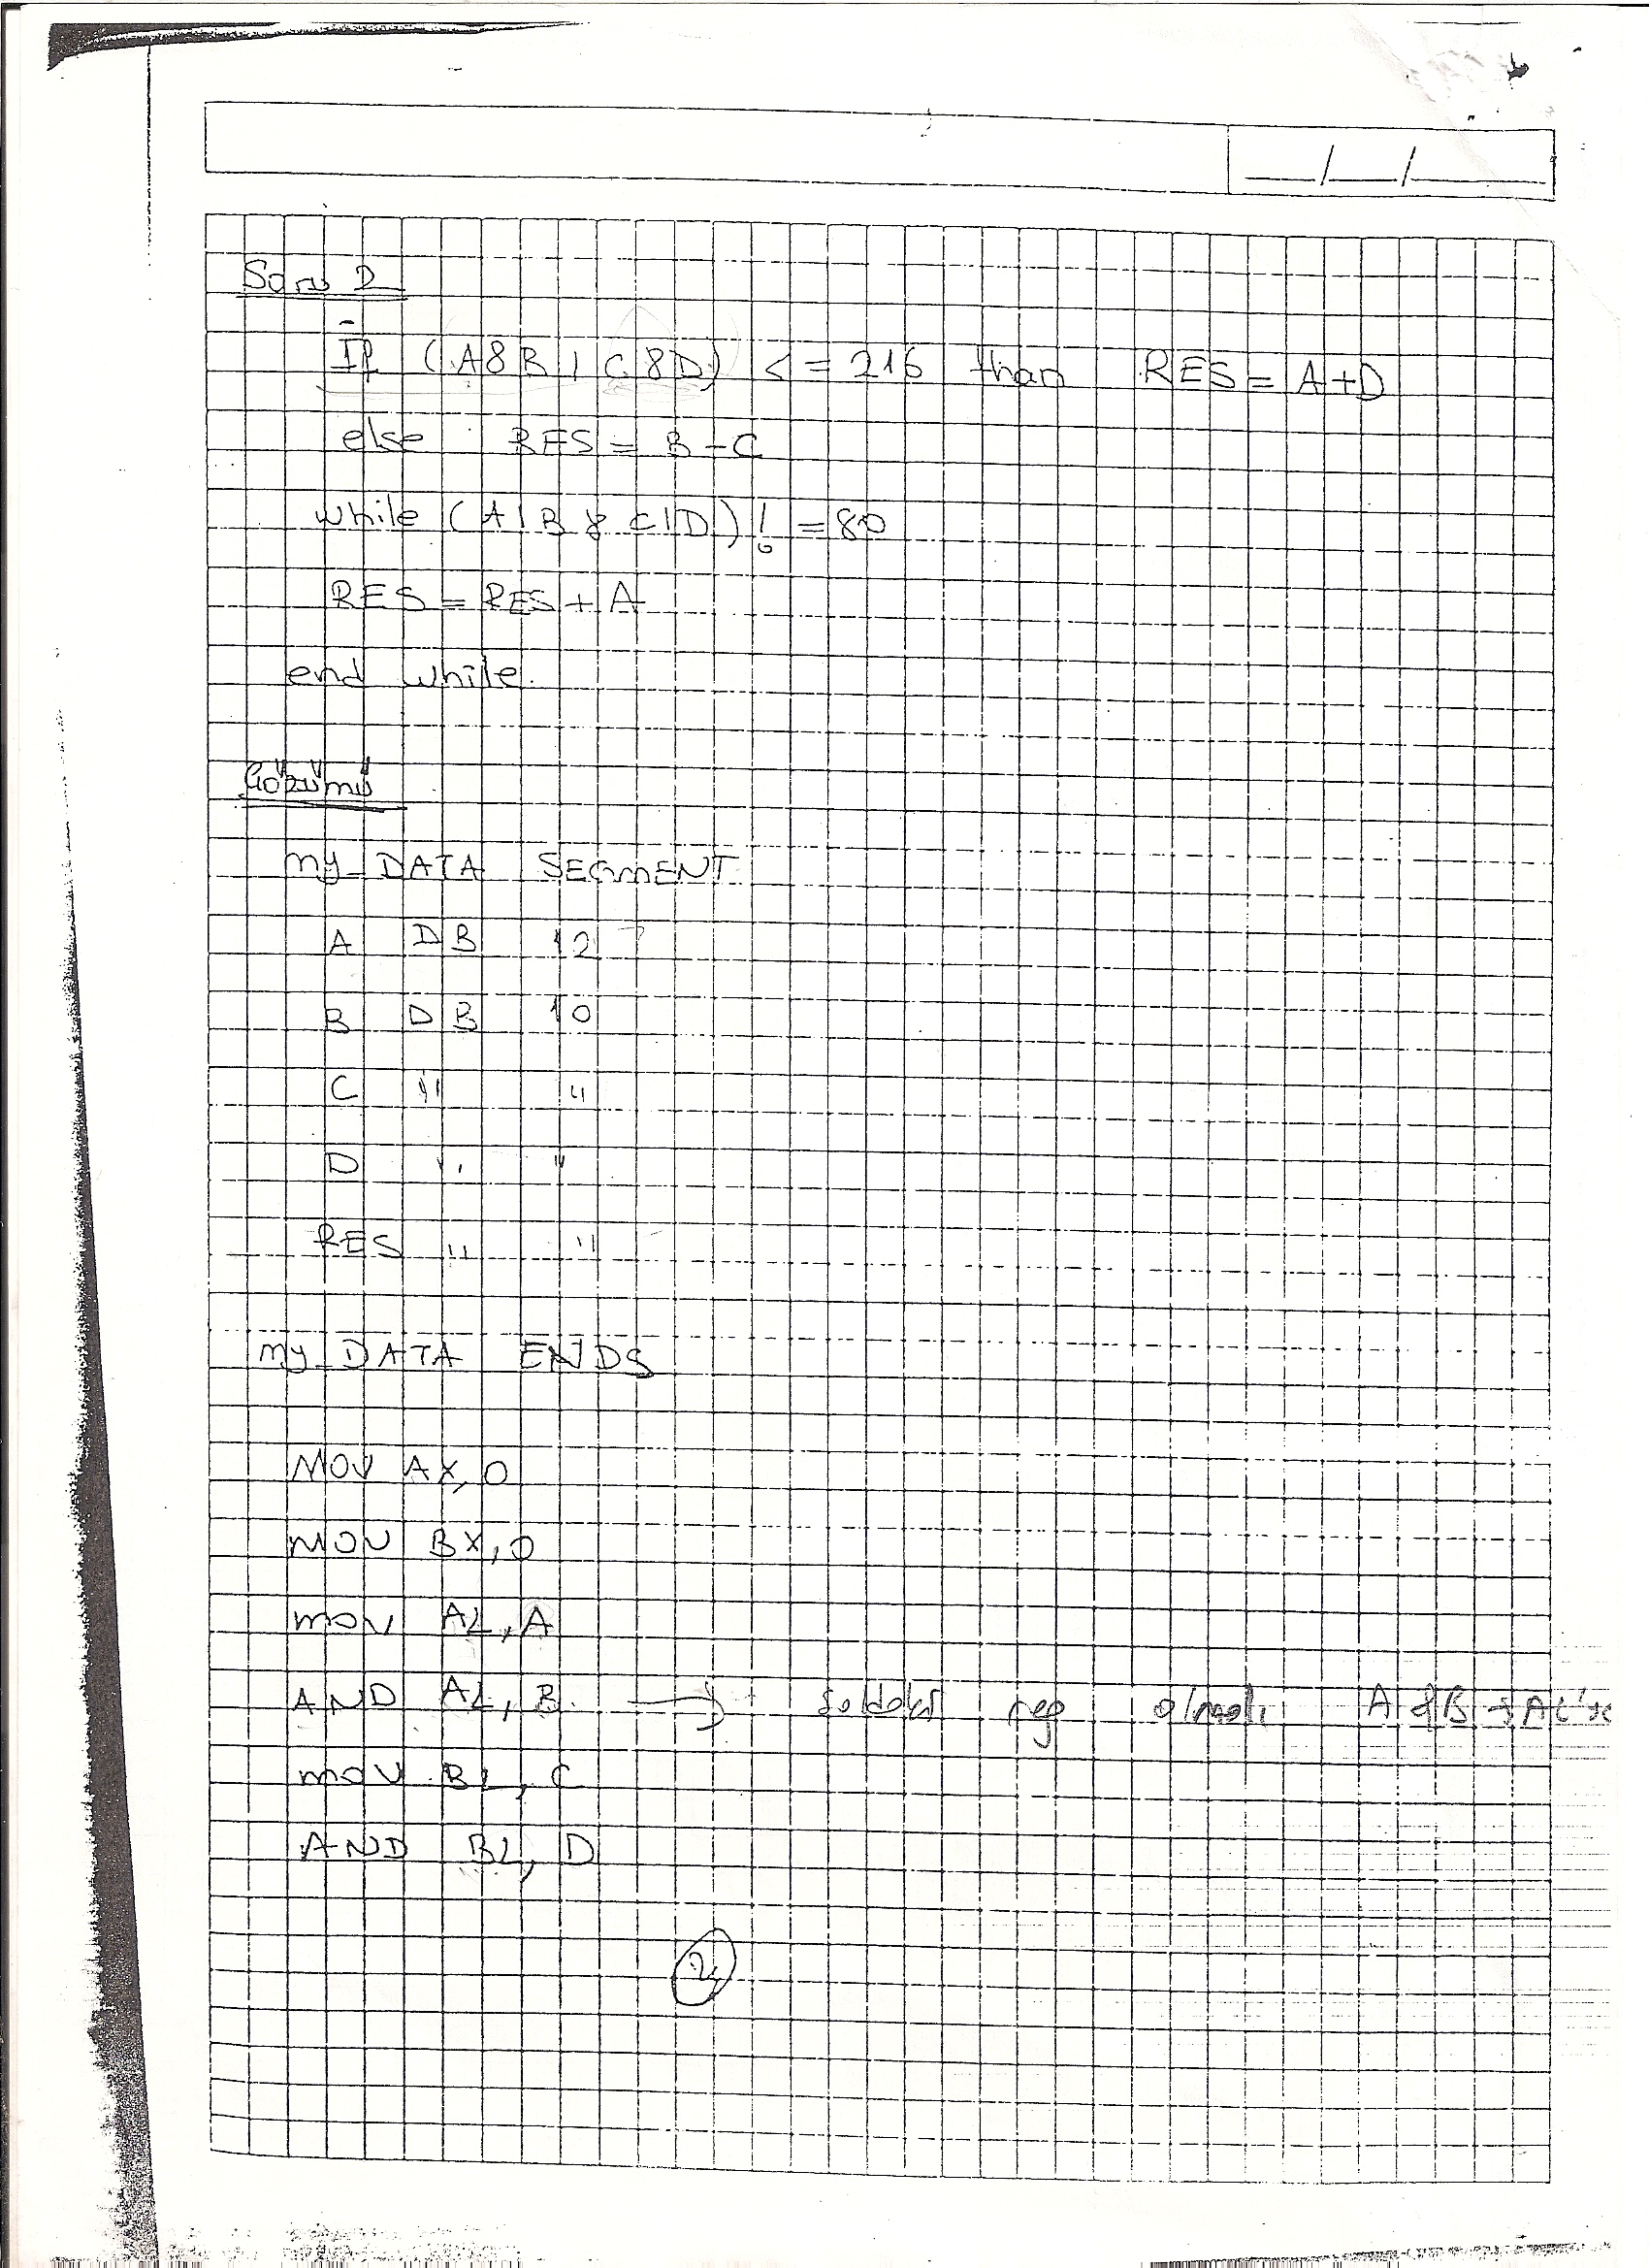 __/__/____
Soru 2
If (A&B | C&D) <= 216 than RES = A+D
else RES = B-C
while (A|B & C|D) != 80
RES = RES + A
end while.
Çözümü
my_DATA SEGMENT
A DB 12
B DB 10
C " "
D " "
RES " "
my_DATA ENDS
MOV AX, 0
MOV BX, 0
mov AL, A
AND AL, B. ⟹ soldaki reg olmalı A&B → AL'
mov BL, C
AND BL, D
2